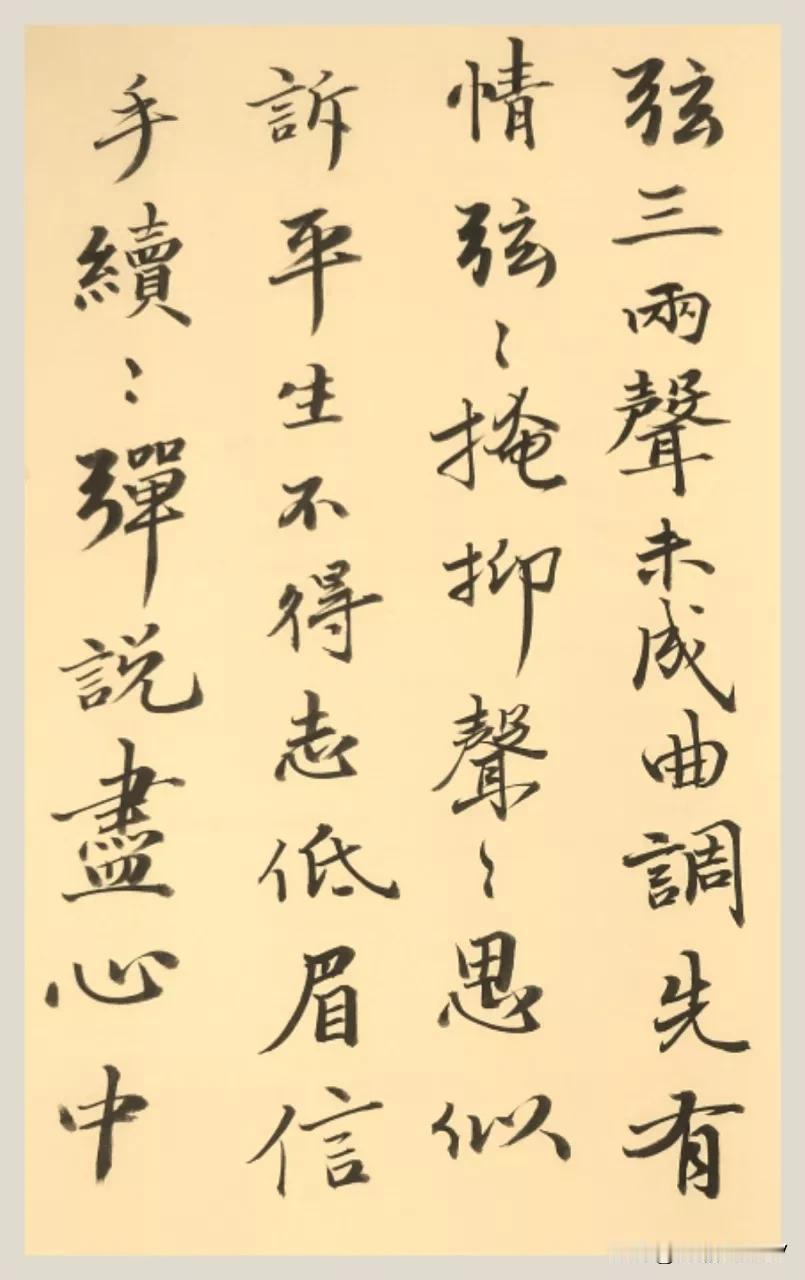 弦三兩聲未成曲調先有
情弦〻掩抑聲〻思似
訴平生不得志低眉信
手續〻彈説盡心中